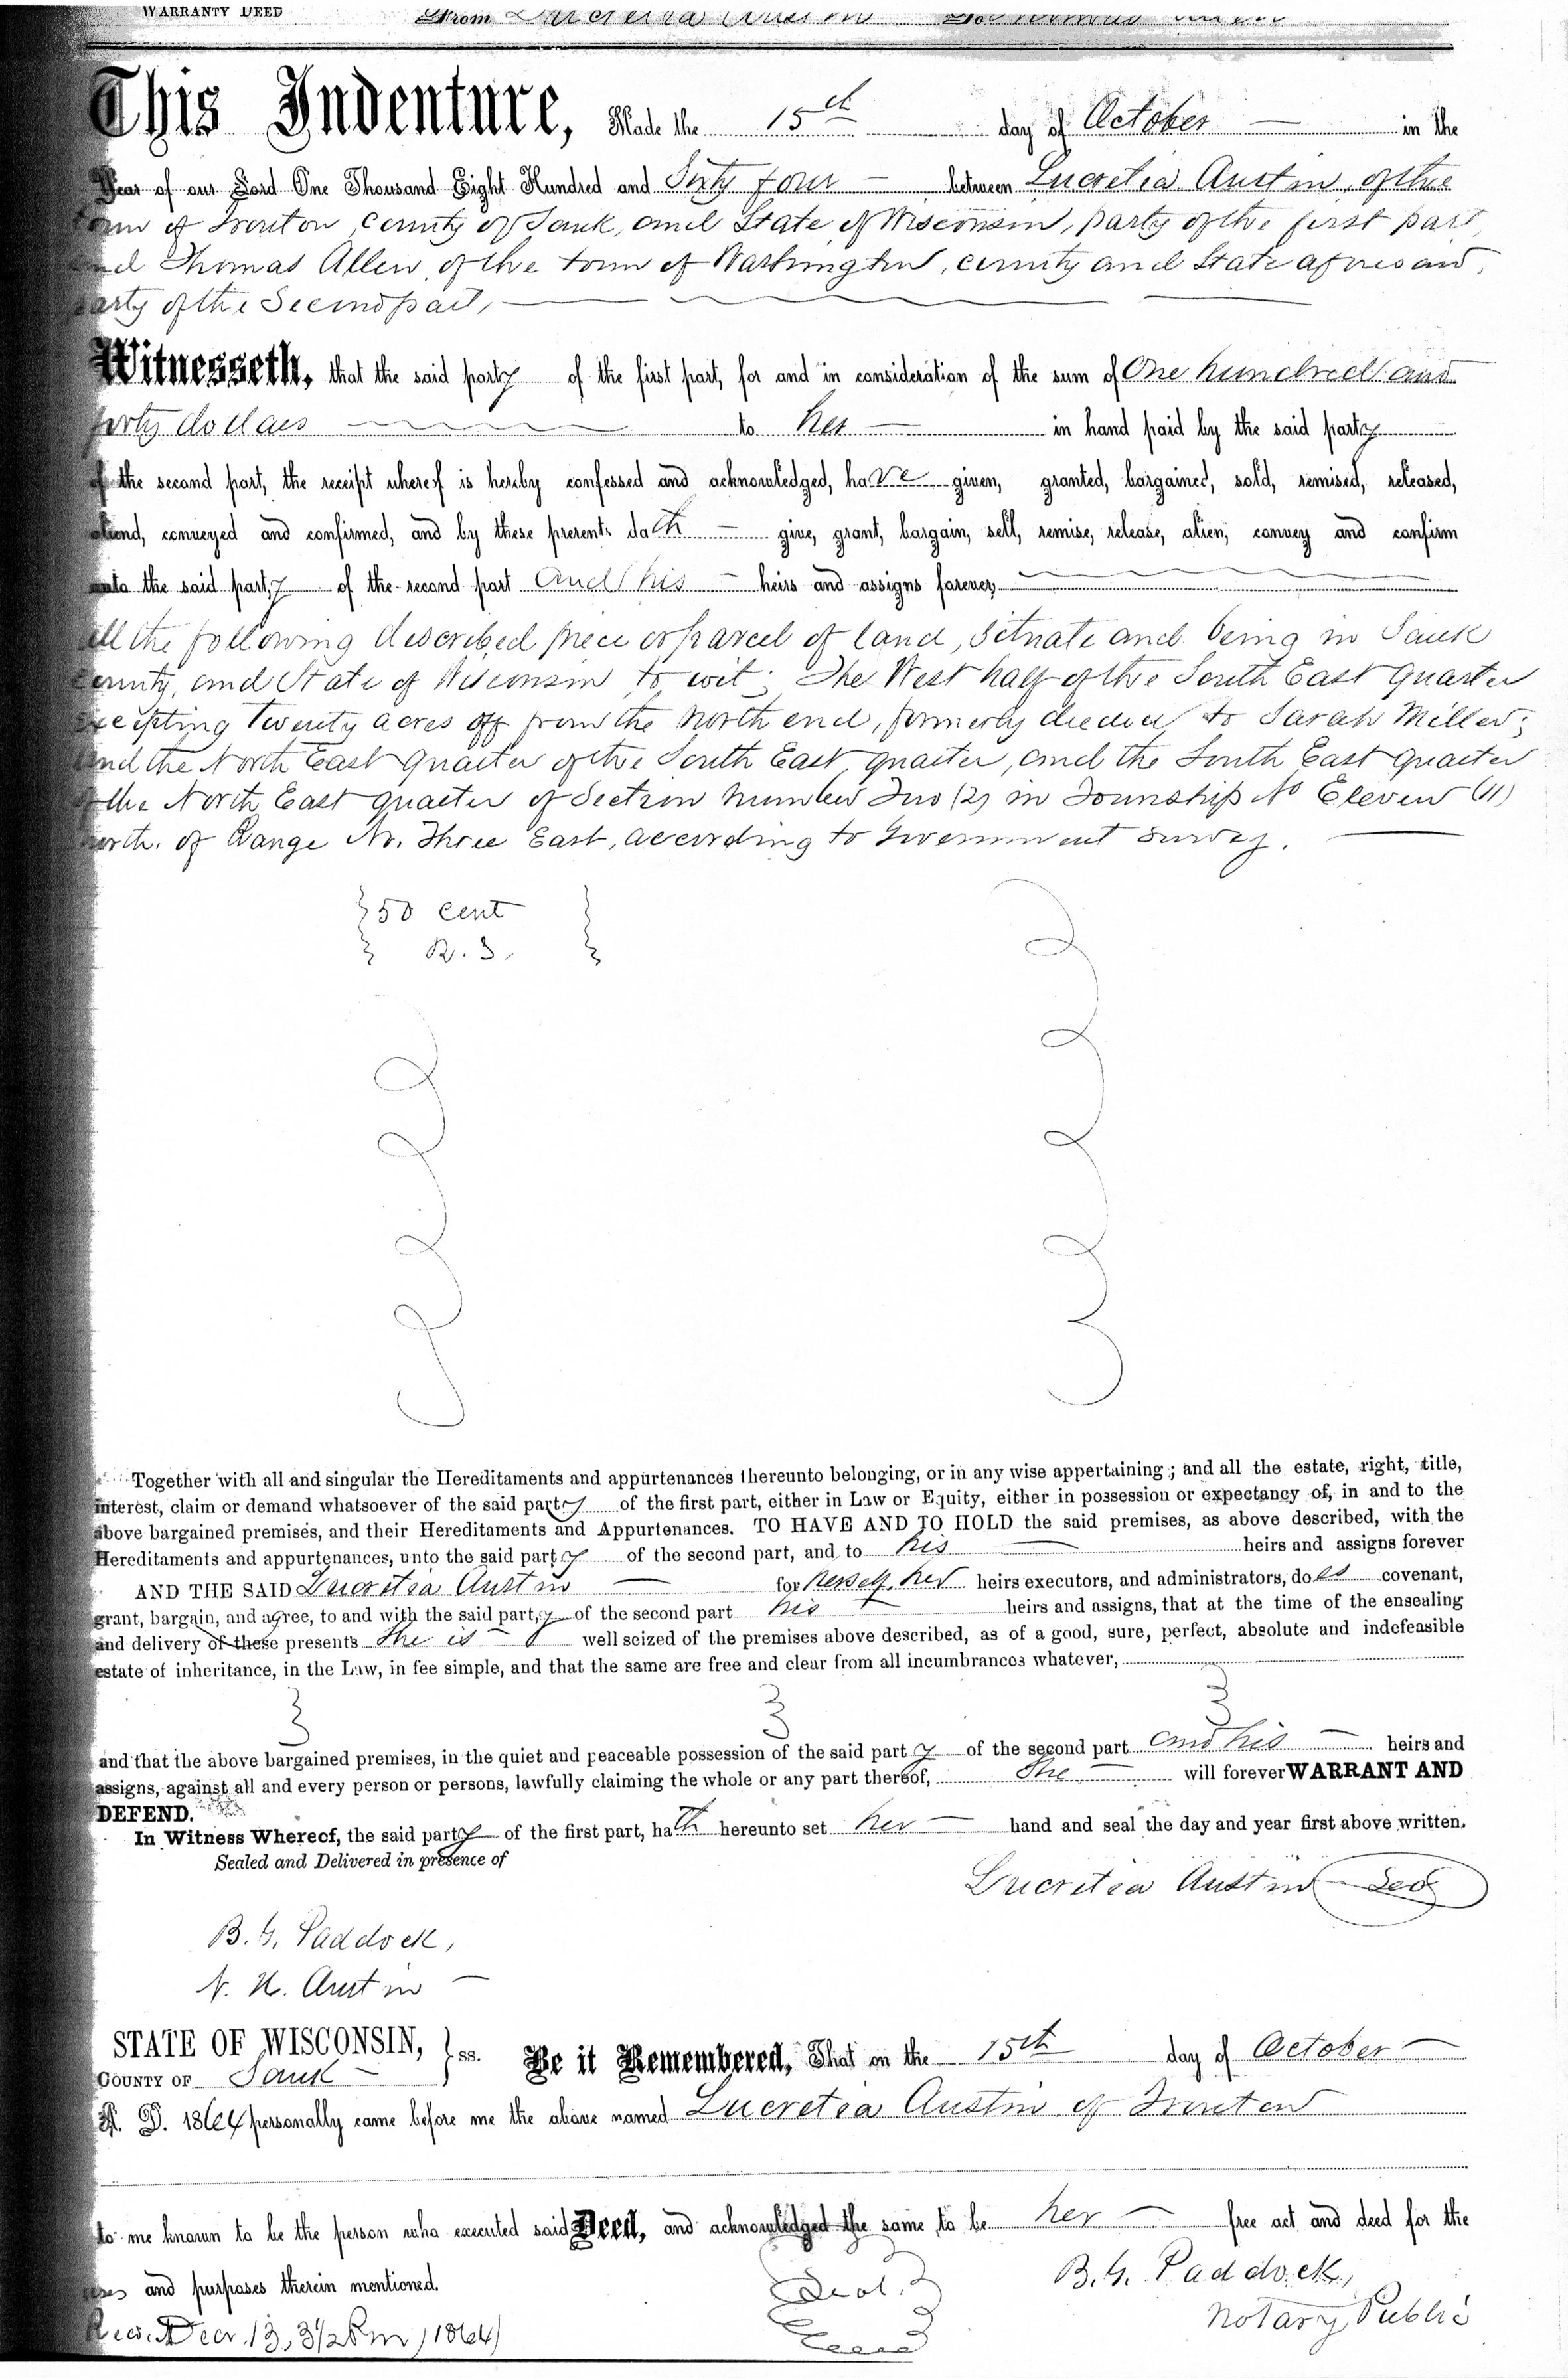 WARRANTY DEED From Lucretia Austin
This Indenture, Made the 15th day of October in the
Year of our Lord One Thousand Eight Hundred and Sixty four between Lucretia Austin, of the
town of Ironton, County of Sauk, and State of Wisconsin, party of the first part,
and Thomas Allen of the town of Washington, county and State aforesaid,
party of the Second part,
Witnesseth, that the said party of the first part, for and in consideration of the sum of One hundred and
forty dollars to her in hand paid by the said party
of the second part, the receipt whereof is hereby confessed and acknowledged, have given, granted, bargained, sold, remised, released,
aliend, conveyed and confirmed, and by these presents doth give, grant, bargain, sell, remise, release, alien, convey and confirm
unto the said party of the second part and his heirs and assigns forever,
all the following described piece or parcel of land, situate and being in Sauk
County, and State of Wisconsin to wit; The West half of the South East quarter
excepting Twenty acres off from the north end, formerly deeded to Sarah Miller;
and the North East quarter of the South East quarter, and the South East quarter
of the North East quarter of Section number Two (2) in Township No Eleven (11)
north. of Range No. Three East, according to Government survey.
50 cent
R. S.
Together with all and singular the Hereditaments and appurtenances thereunto belonging, or in any wise appertaining; and all the estate, right, title,
interest, claim or demand whatsoever of the said party of the first part, either in Law or Equity, either in possession or expectancy of, in and to the
above bargained premises, and their Hereditaments and Appurtenances. TO HAVE AND TO HOLD the said premises, as above described, with the
Hereditaments and appurtenances, unto the said party of the second part, and to his heirs and assigns forever
AND THE SAID Lucretia Austin for herself, her heirs executors, and administrators, does covenant,
grant, bargain, and agree, to and with the said party of the second part his heirs and assigns, that at the time of the ensealing
and delivery of these presents She is well seized of the premises above described, as of a good, sure, perfect, absolute and indefeasible
estate of inheritance, in the Law, in fee simple, and that the same are free and clear from all incumbrances whatever,
and that the above bargained premises, in the quiet and peaceable possession of the said party of the second part and his heirs and
assigns, against all and every person or persons, lawfully claiming the whole or any part thereof, She will forever WARRANT AND
DEFEND.
In Witness Whereof, the said party of the first part, hath hereunto set her hand and seal the day and year first above written.
Sealed and Delivered in presence of
Lucretia Austin Seal
B. G. Paddock,
N. H. Austin
STATE OF WISCONSIN, } ss. Be it Remembered, That on the 15th day of October
COUNTY OF Sauk
A. D. 1864 personally came before me the above named Lucretia Austin of Ironton
to me known to be the person who executed said Deed, and acknowledged the same to be her free act and deed for the
uses and purposes therein mentioned.
Seal.
B. G. Paddock,
Notary Public
Recd. Decr. 13, 3 1/2 Pm, 1864